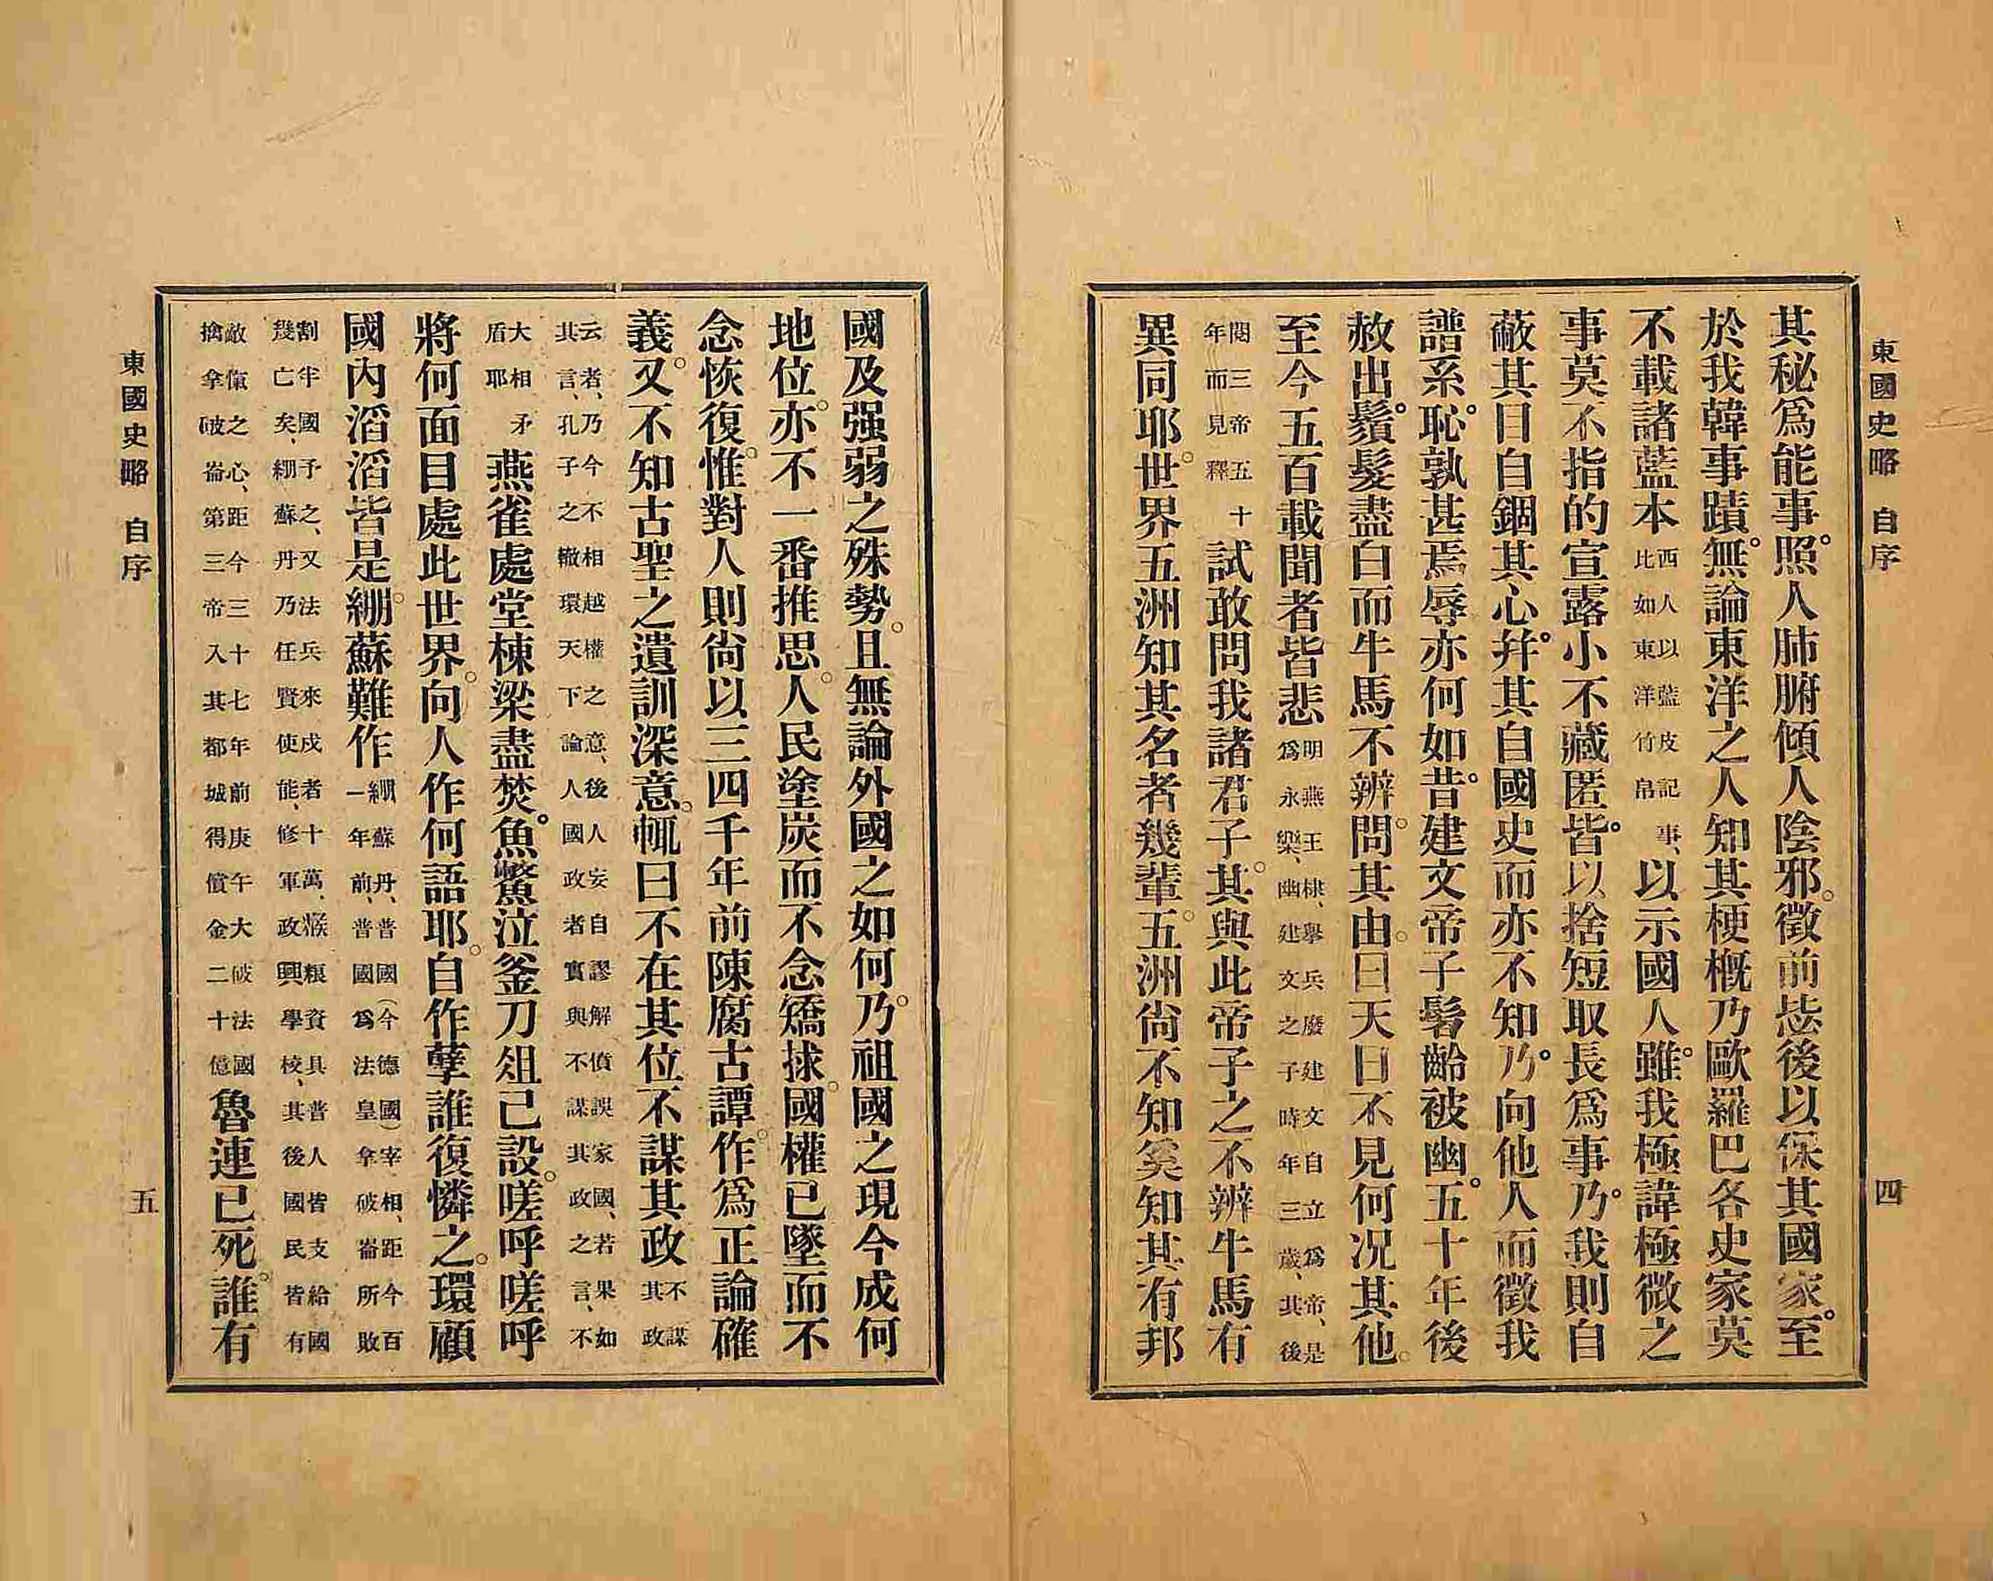 東國史略 自序 四
其秘爲能事。照人肺腑傾人陰邪。徵前毖後以保其國家。至
於我韓事蹟。無論東洋之人知其梗槪乃歐羅巴各史家莫
不載諸藍本西人以藍皮記事、比如東洋竹帛以示國人。雖我極諱極微之
事莫不指的宣露小不藏匿。皆以捨短取長爲事。乃我則自
蔽其目自錮其心。幷其自國史而亦不知。乃向他人而徵我
譜系。恥孰甚焉辱亦何如。昔建文帝子髫齡被幽。五十年後
赦出。鬚髮盡白而牛馬不辨。問其由。曰天日不見何况其他。
至今五百載聞者皆悲明燕王棣、擧兵廢建文自立爲帝、是
爲永樂、幽建文之子時年三歲、其後
閱三帝五十年而見釋試敢問我諸君子。其與此帝子之不辨牛馬有
異同耶。世界五洲知其名者幾輩。五洲尙不知奚知其有邦
國及强弱之殊勢。且無論外國之如何。乃祖國之現今成何
地位。亦不一番推思。人民塗炭而不念矯捄。國權已墜而不
念恢復。惟對人則尙以三四千年前陳腐古譚。作爲正論確
義。又不知古聖之遺訓深意。輒曰不在其位不謀其政不謀其政
云者、乃今不相越權之意、後人妄自謬解僨誤家國、若果如
其言、孔子之轍環天下論人國政者實與不謀其政之言、不
大相矛盾耶燕雀處堂棟梁盡焚。魚鱉泣釜刀俎已設。嗟呼嗟呼
將何面目處此世界。向人作何語耶。自作孽誰復憐之。環顧
國內滔滔皆是。綳蘇難作綳蘇丹、普國(今德國)宰相、距今百
一年前、普國爲法皇拿破崙所敗
割半國予之、又法兵來戍者十萬、糇粮資具普人皆支給國
幾亡矣、綳蘇丹乃任賢使能、修軍政興學校、其後國民皆有
敵愾之心、距今三十七年前庚午大破法國
擒拿破崙第三帝入其都城得償金二十億魯連已死。誰有
東國史略 自序 五